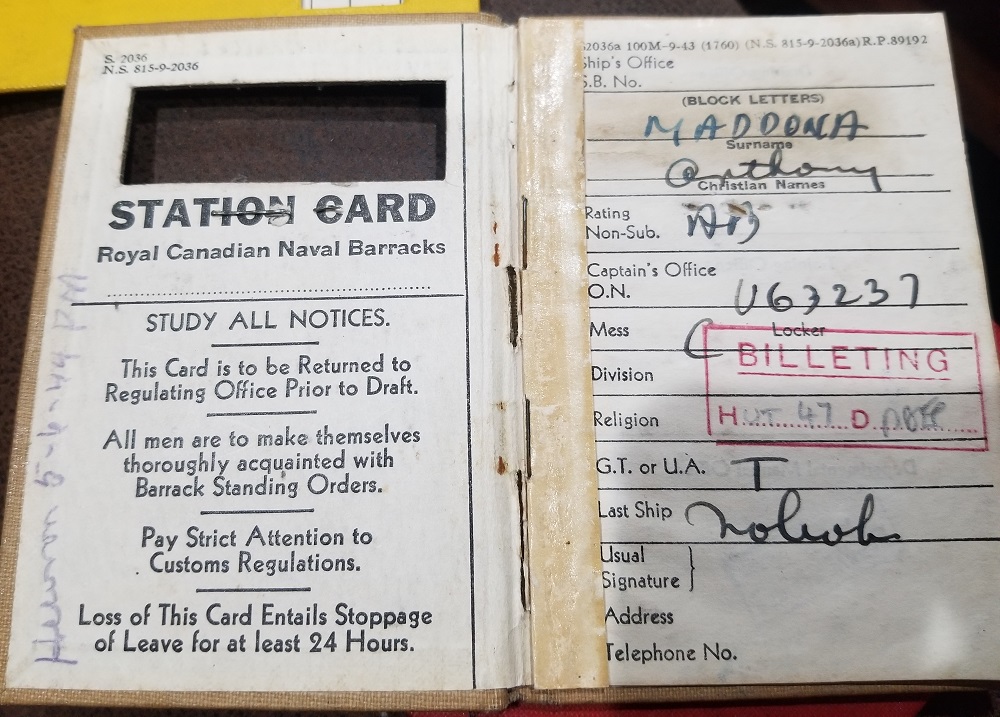 S. 2036
N.S. 815-9-2036
STATION CARD
Royal Canadian Naval Barracks
STUDY ALL NOTICES.
This Card is to be Returned to
Regulating Office Prior to Draft.
All men are to make themselves
thoroughly acquainted with
Barrack Standing Orders.
Pay Strict Attention to
Customs Regulations.
Loss of This Card Entails Stoppage
of Leave for at least 24 Hours.
5-6-44
2036a 100M-9-43 (1760) (N.S. 815-9-2036a) R.P.89192
Ship's Office
S.B. No.
(BLOCK LETTERS)
MADDONA
Surname
Anthony
Christian Names
Rating
Non-Sub. AB
Captain's Office
O.N. V63237
Mess C Locker
BILLETING
Division
Religion
HUT 47 D
G.T. or U.A. T
Last Ship
Usual
Signature }
Address
Telephone No.